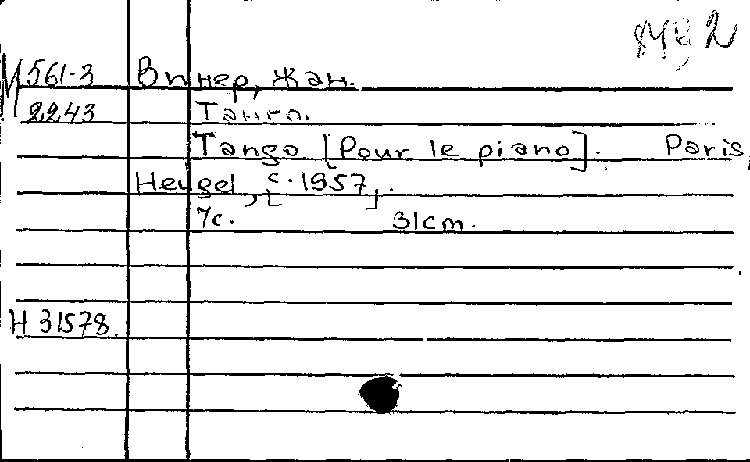 М 561-3 Винер, Жан.
2243 Танго.
Tango [Pour le piano]. Paris,
Heugel, [c. 1957].
7с. 31cm.
Н 31578.